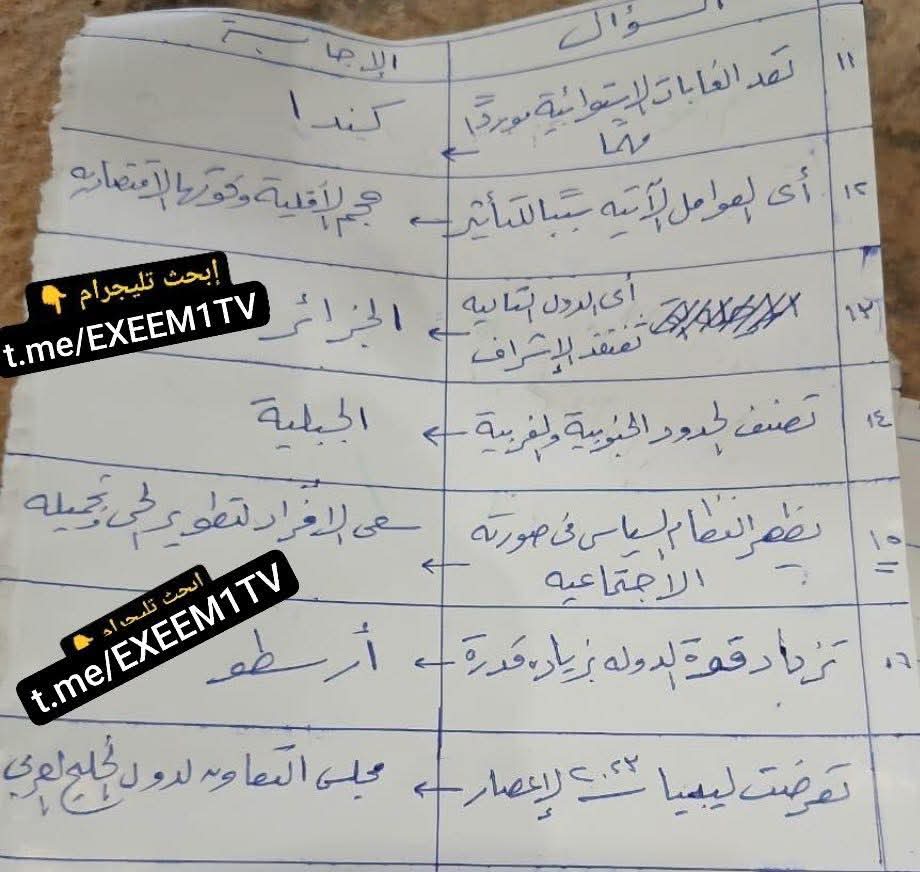 السؤال
الإجابة
١١
تعد الغابات الاستوائية موردًا
مهمًا
كيندا
١٢
أى العوامل الآتيه سببًا للتأثير
حجم الأقلية وقوتها الاقتصاديه
١٣
أى الدول التاليه
تفتقد الإشراف
الجزائر
١٤
تصنف الحدود الجنوبية والغربية
الجبلية
١٥
يظهر النظام السياسى فى صورته
الاجتماعيه
سعى الأفراد لتطوير الحى وتجميله
١٦
تزداد قوة الدوله بزياده قدرة
أرسطو
تعرضت ليبيا ٢٠٢٣ لإعصار
مجلس التعاون لدول الخليج العربى
إبحث تليجرام 👇
t.me/EXEEM1TV
إبحث تليجرام 👇
t.me/EXEEM1TV